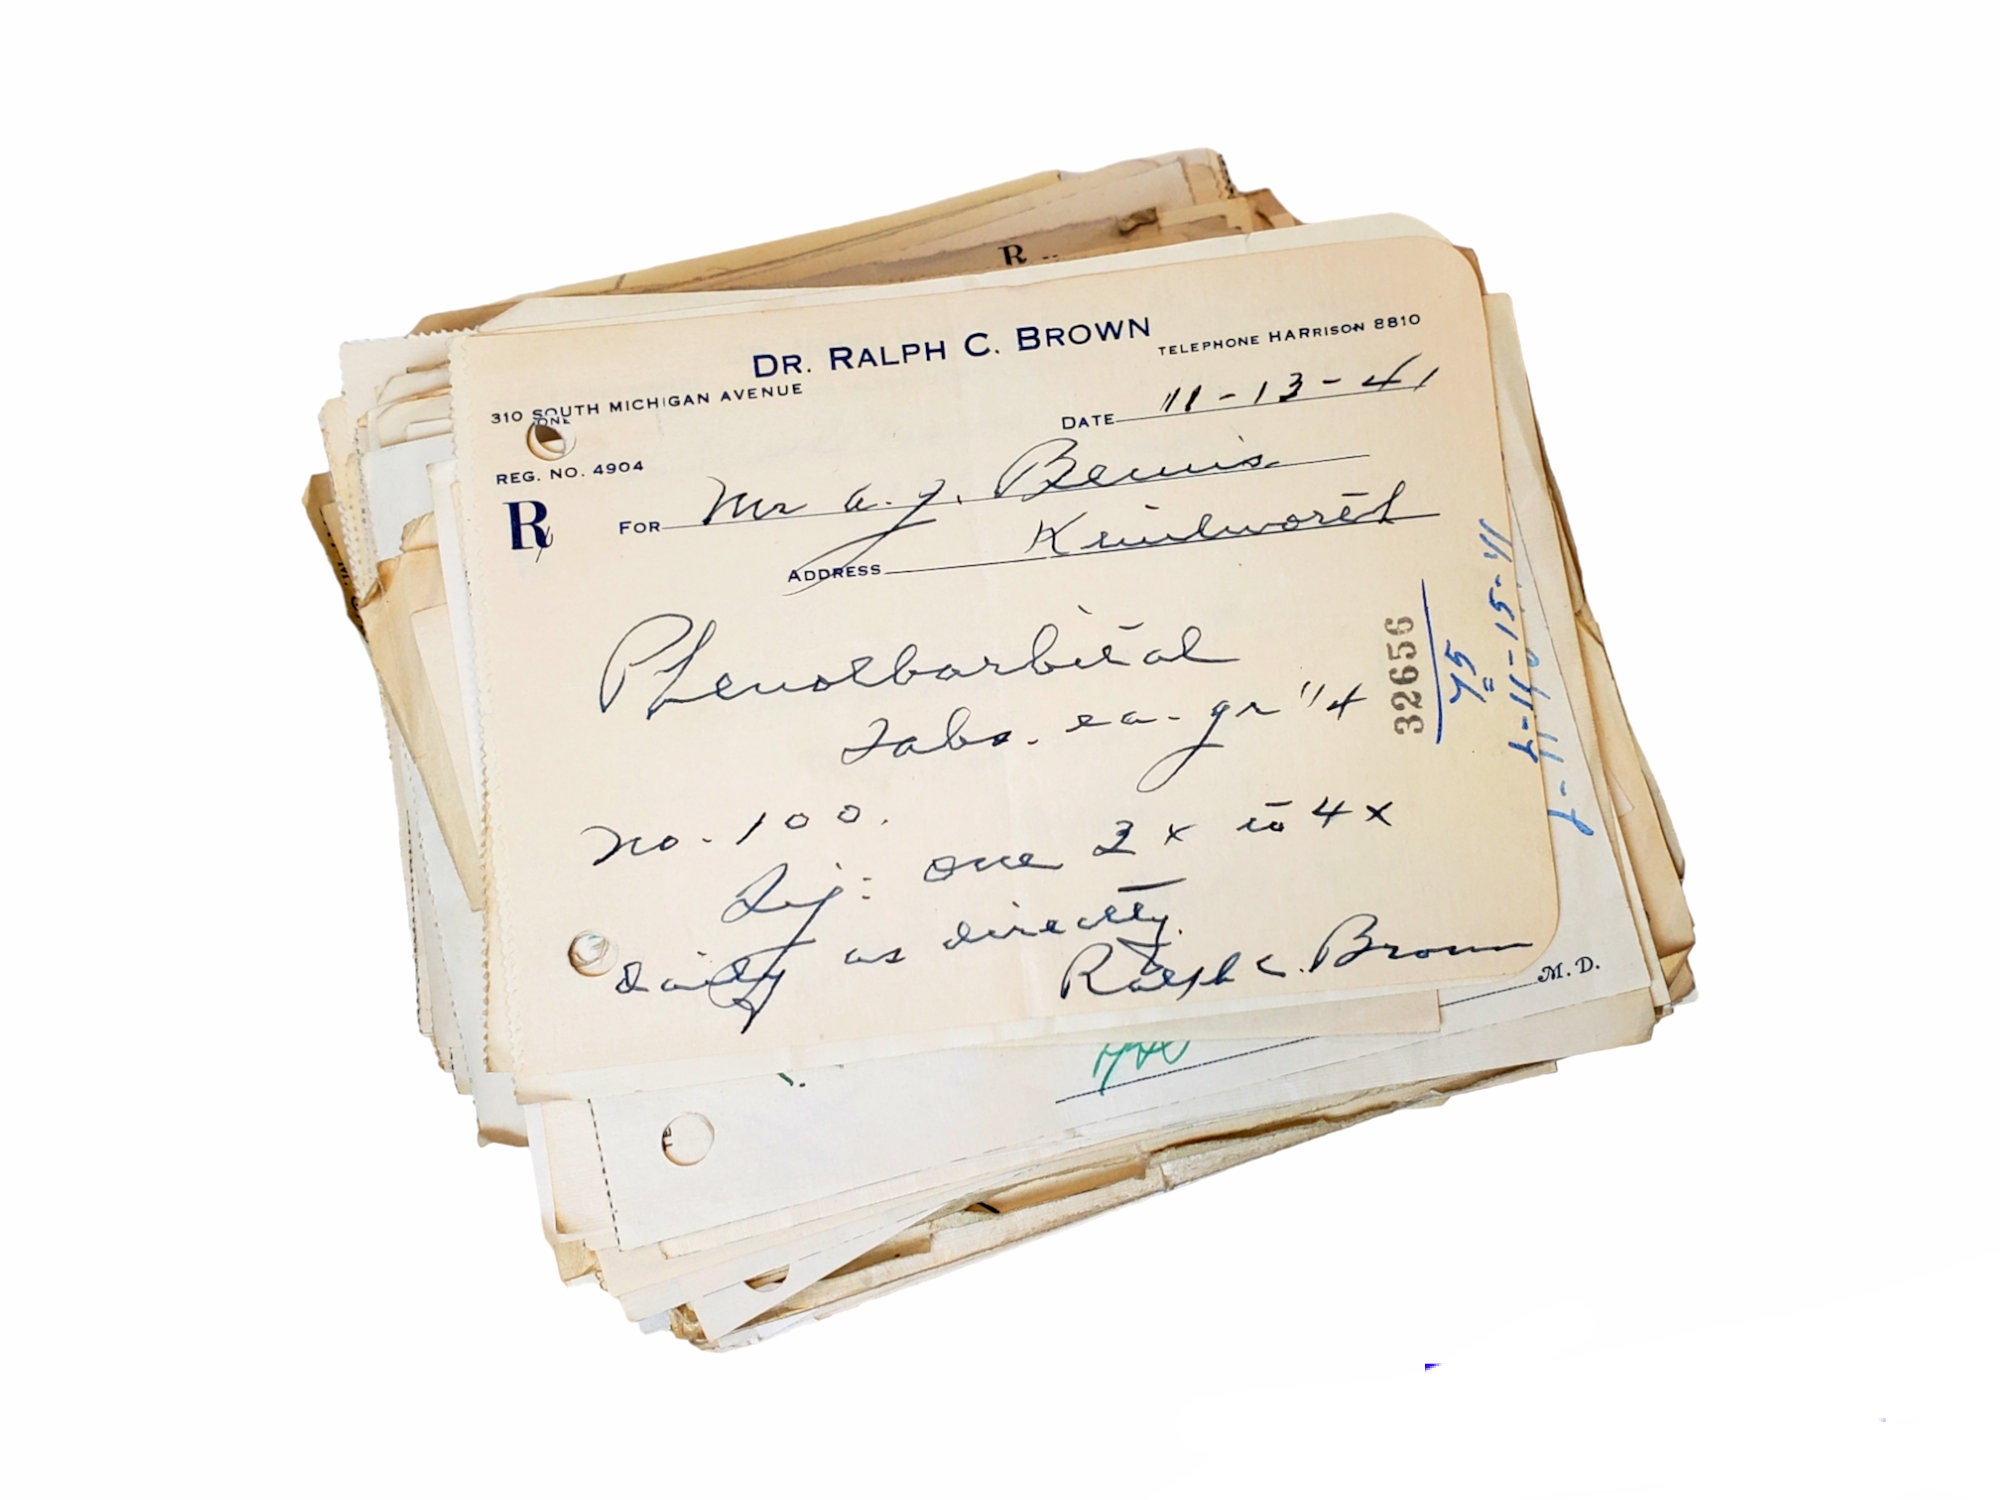 R
DR. RALPH C. BROWN
310 SOUTH MICHIGAN AVENUE
TELEPHONE HARRISON 8810
DATE 11-13-41
REG. NO. 4904
R
FOR Mr A. J. Bemis
ADDRESS Kenilworth
Phenobarbital
Tabs. ea. gr 1/4
No. 100.
Sig: one 3x to 4x
daily as directed.
Ralph C. Brown
32656
75
M.D.